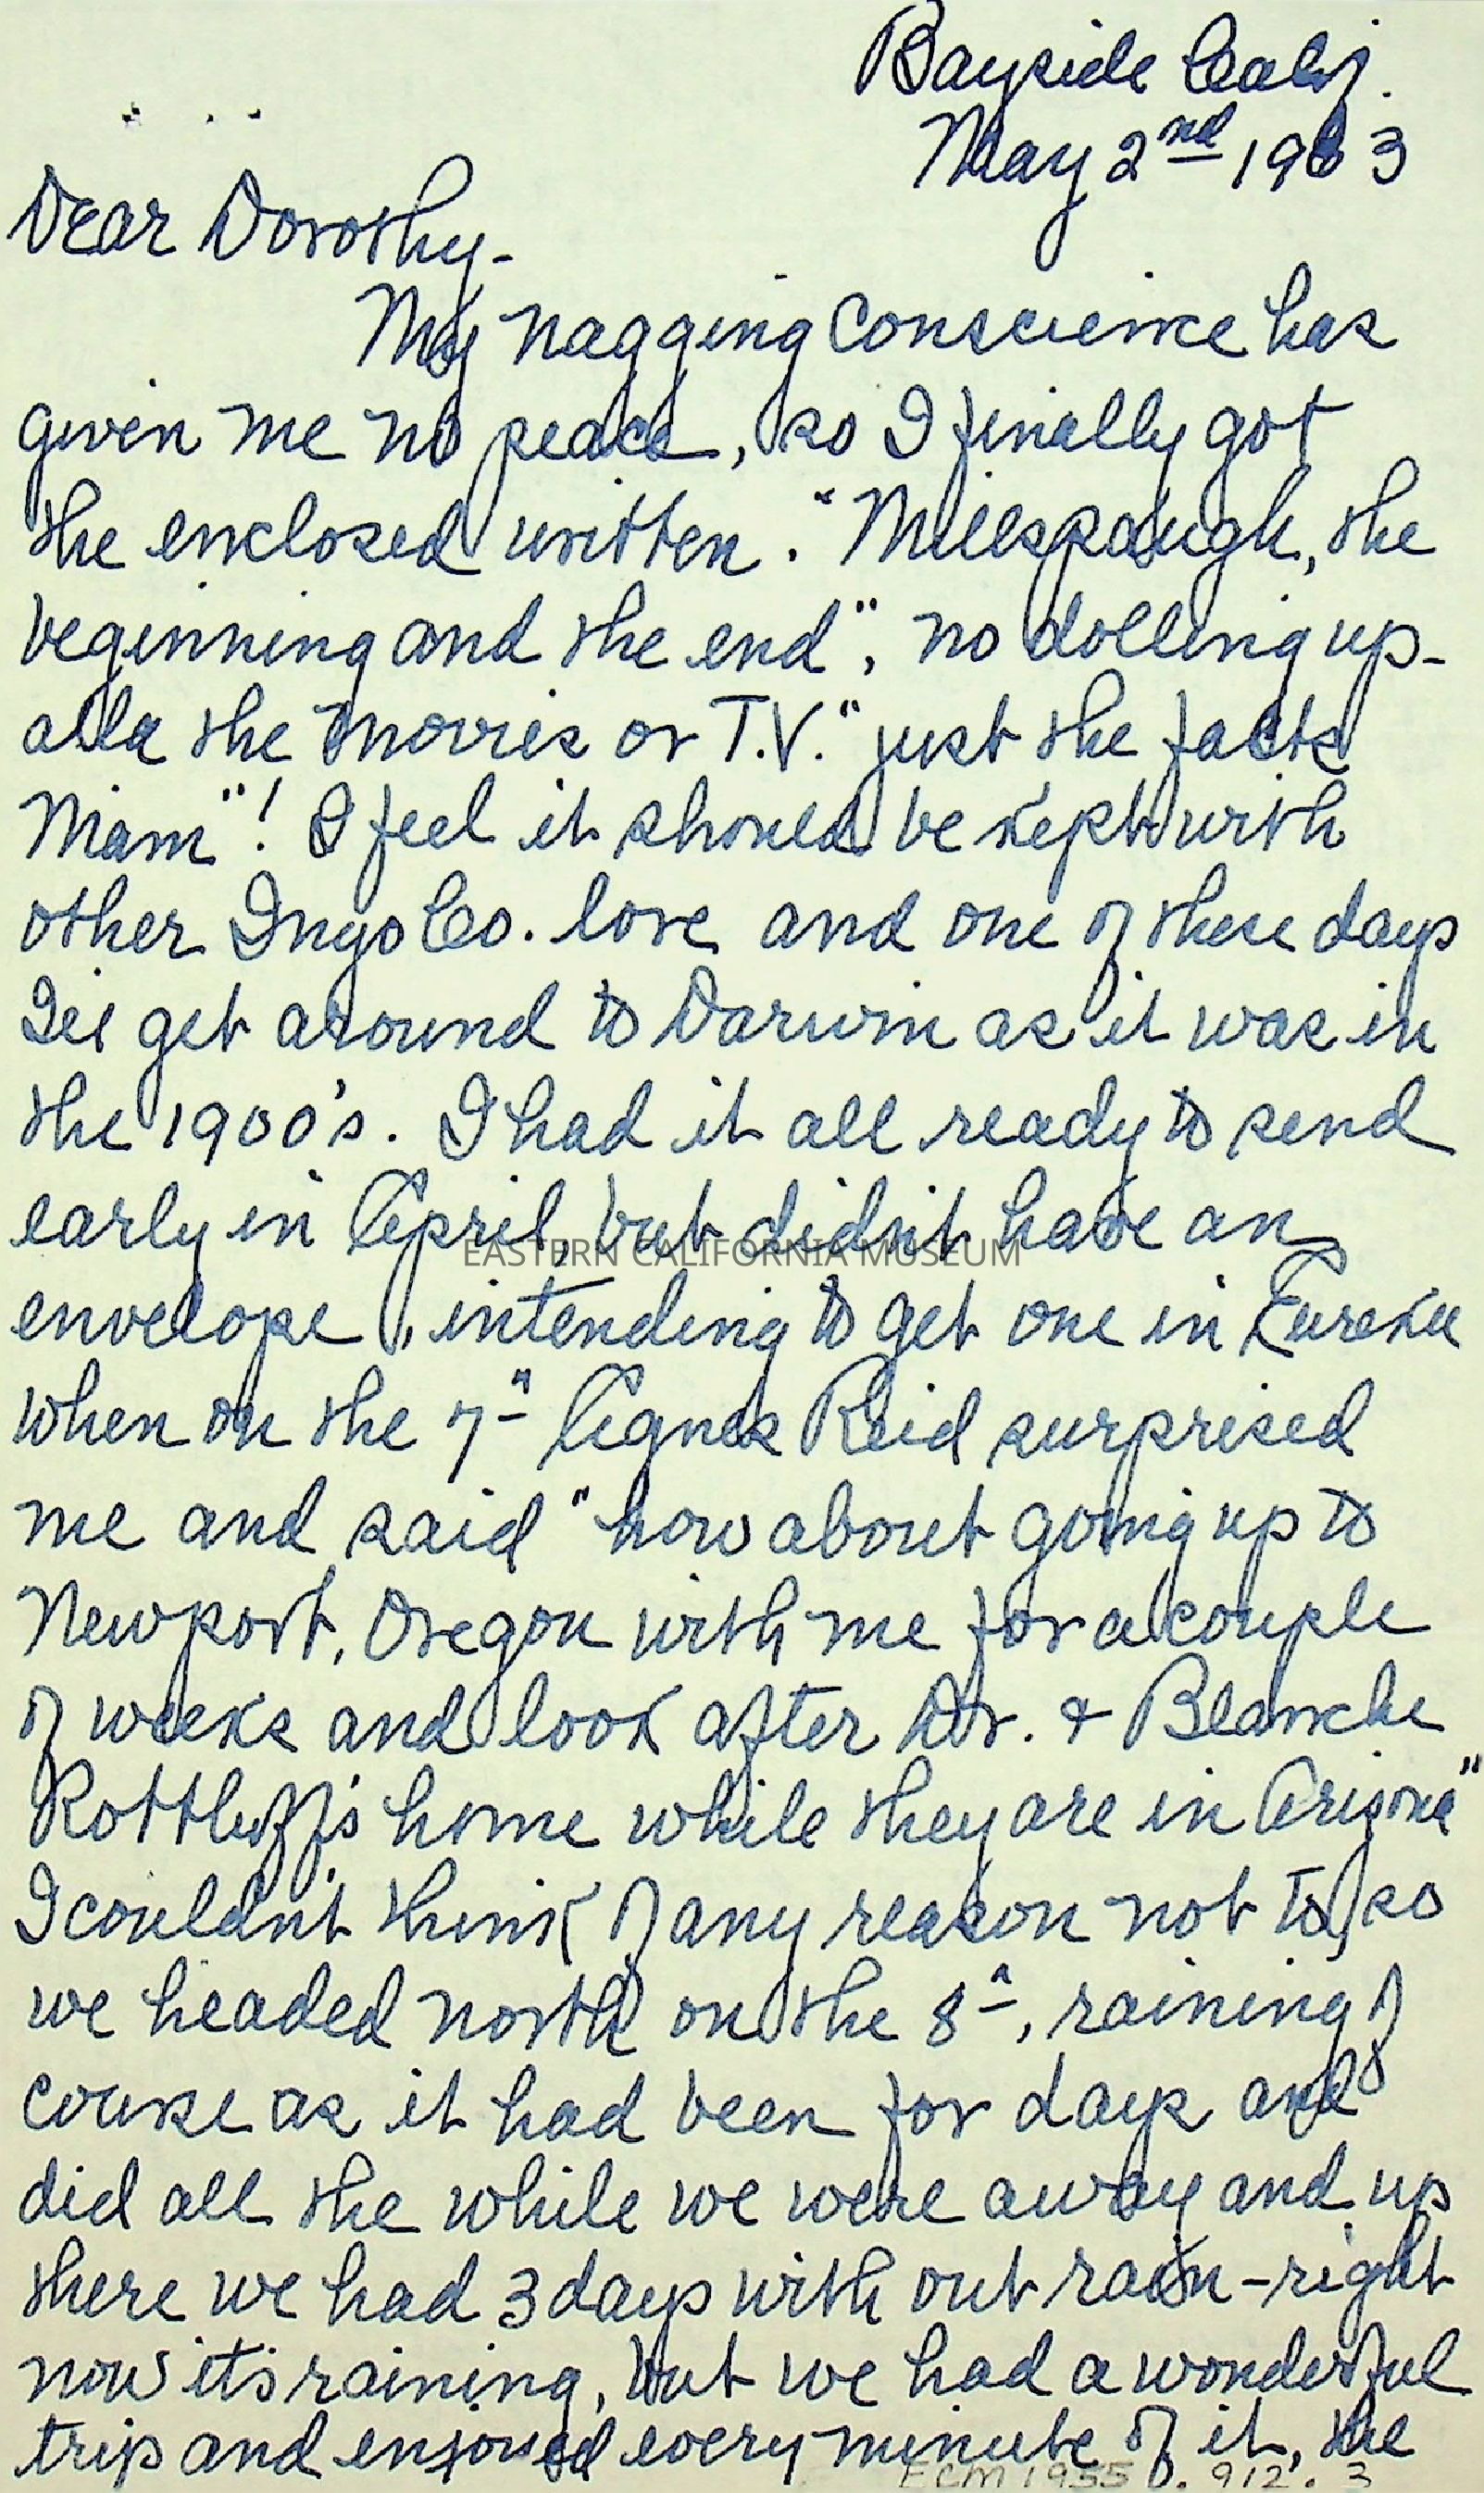 Bayside Calif.
May 2nd 1963
Dear Dorothy-
My nagging Conscience has
given me no peace, so I finally got
the enclosed written. "Millspaugh, the
beginning and the end", no dolling up-
alla the movies or T.V. "just the facts
Mam"! I feel it should be kept with
other Inyo Co. lore and one of these days
I'll get around to Darwin as it was in
the 1900's. I had it all ready to send
early in April, but didn't have an
EASTERN CALIFORNIA MUSEUM
envelope, intending to get one in Eureka
when on the 7th Agnes Reid surprised
me and said "how about going up to
Newport, Oregon with me for a couple
of weeks and look after Dr. & Blanche
Rottluff's home while they are in Arizona"
I couldn't think of any reason not to, so
we headed north on the 8th, raining of
course as it had been for days and
did all the while we were away and up
there we had 3 days with out rain-right
now it's raining, but we had a wonderful
trip and enjoyed every minute of it, the
ECM 1955 . 912 . 3